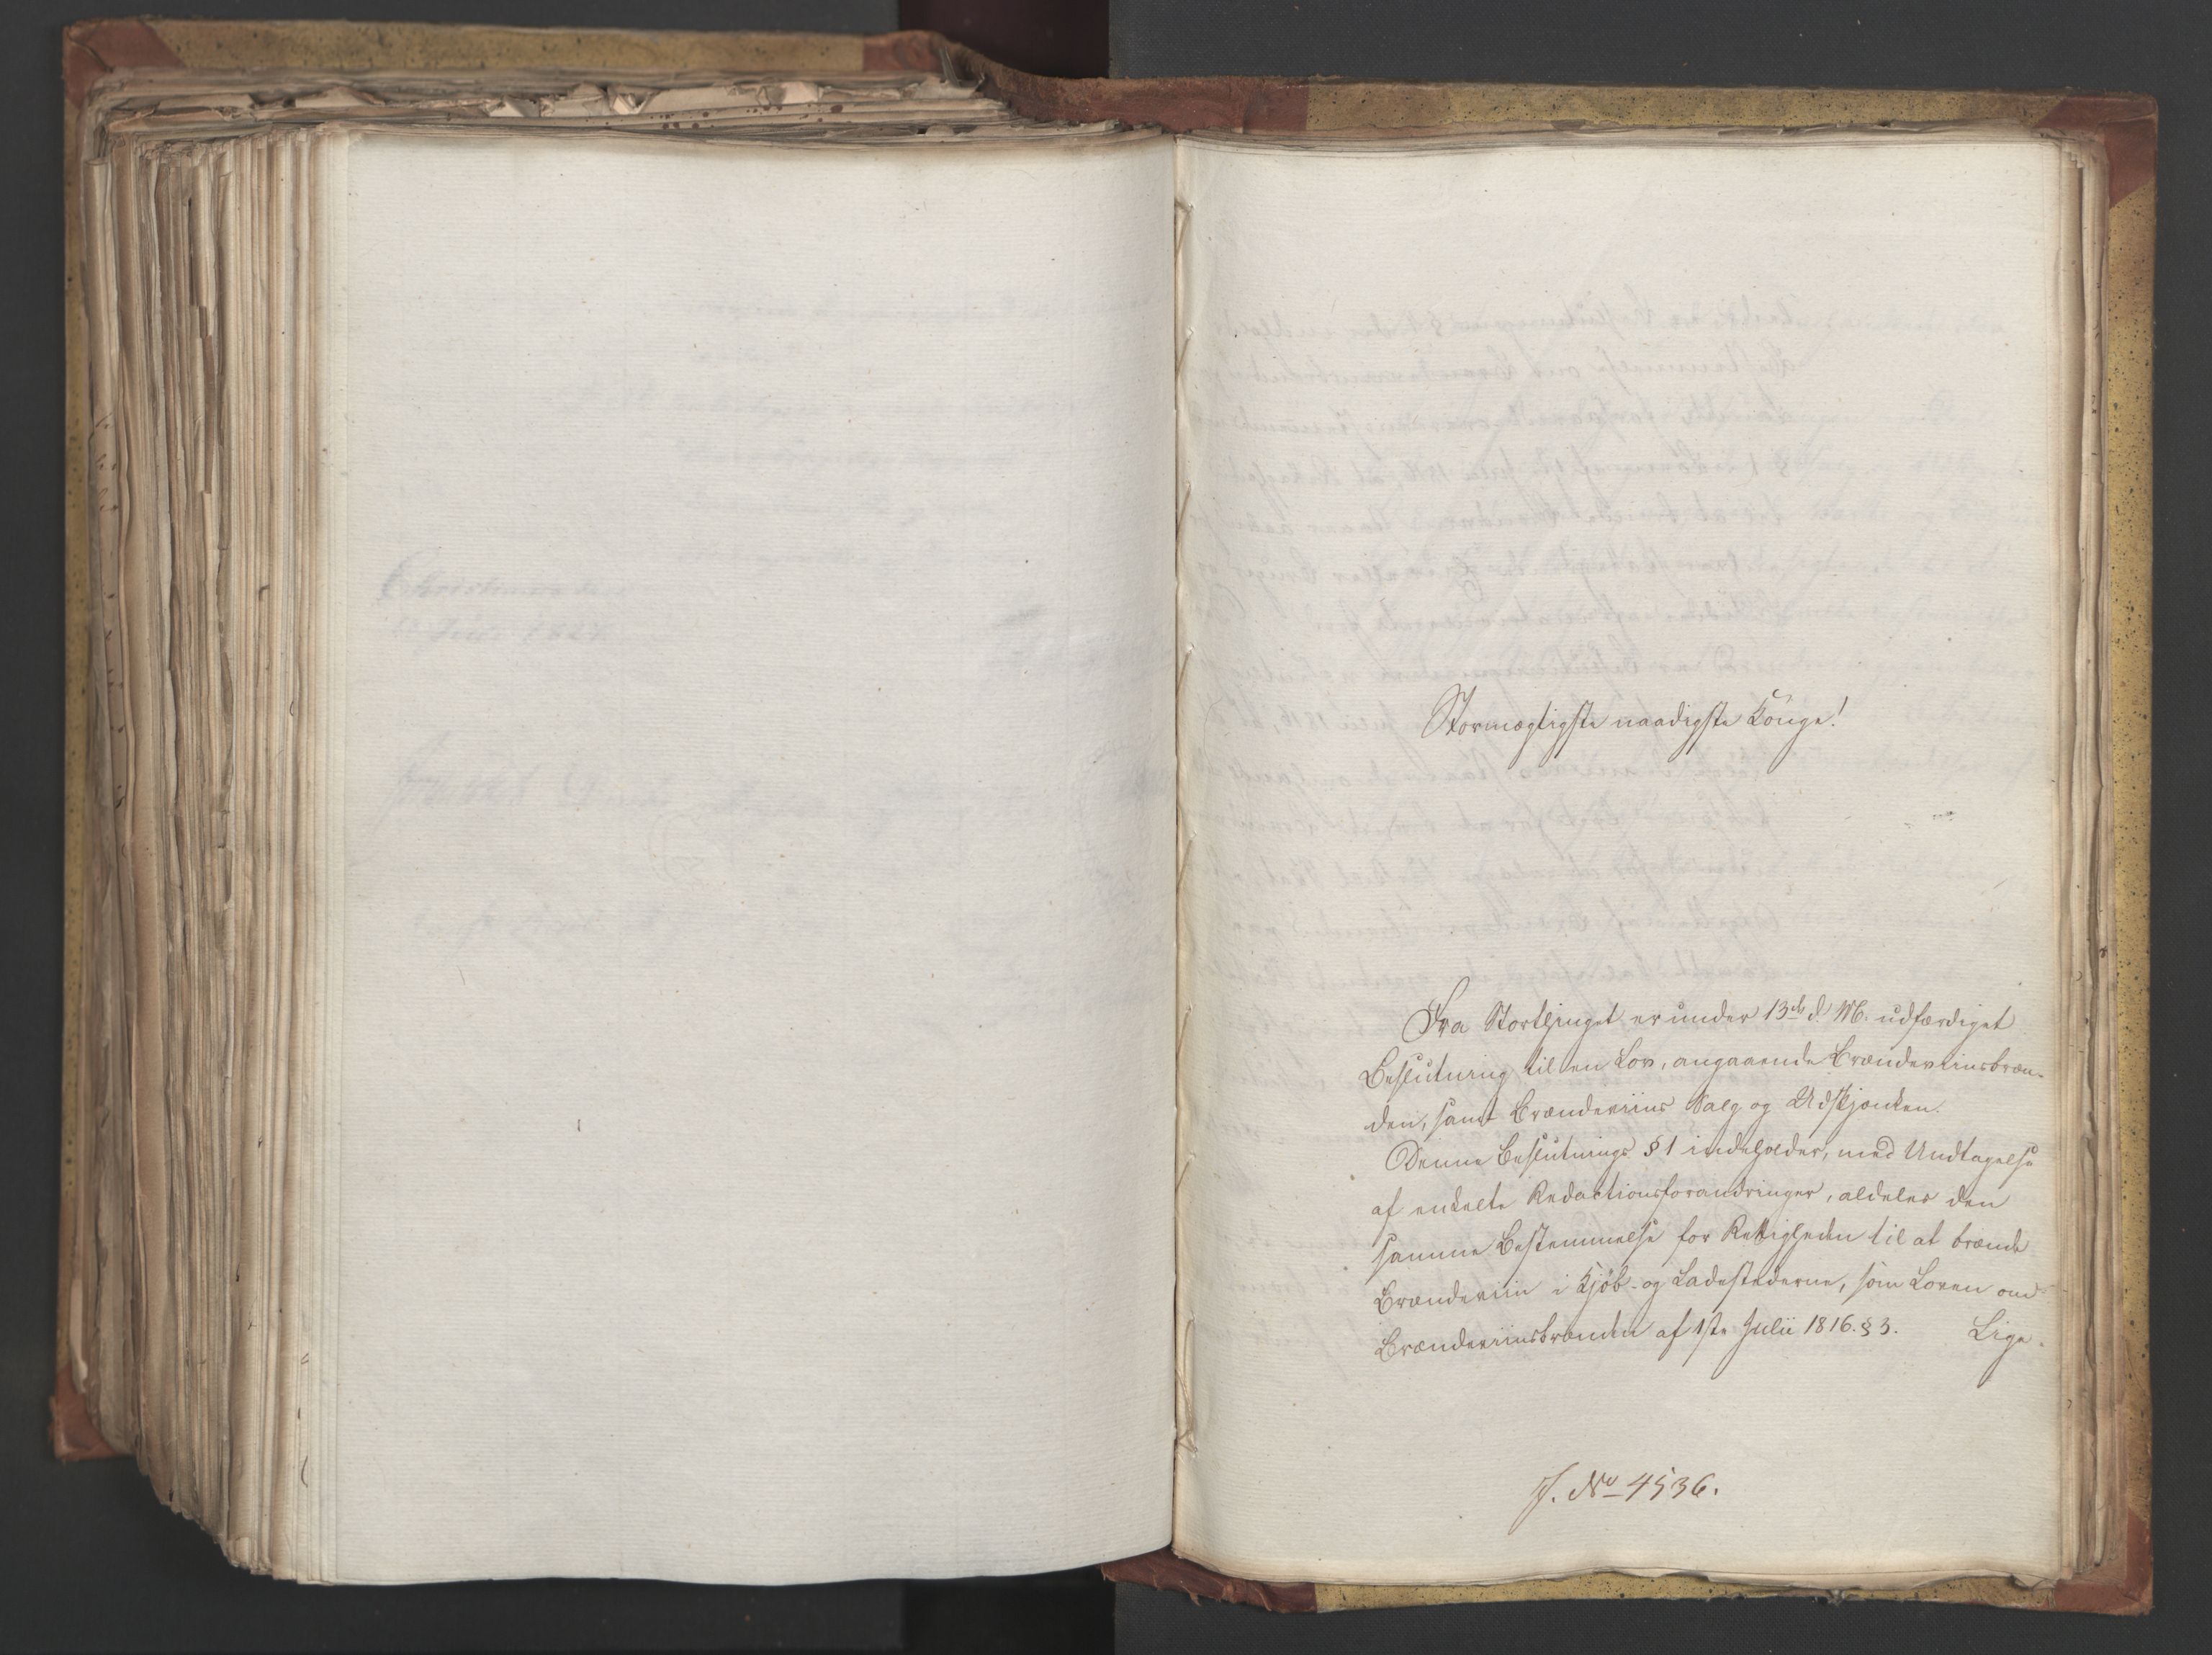 Stormægtigste naadigste Konge!
Fra Storthinget er under 13de d. M. udfærdiget
Beslutning til en Lov, angaaende Brændeviinsbræn-
den, samt Brændeviins Salg og Udskjænken.
Denne Beslutnings § 1 indeholder, med Undtagelse
af enkelte Redactionsforandringer, aldeles den
samme Bestemmelse for Rettigheden til at brænde
Brændeviin i Kjøb- og Ladestederne, som Loven om
Brændeviinsbrænden af 1ste Julii 1816. § 3. Lige-
J. No 4536.